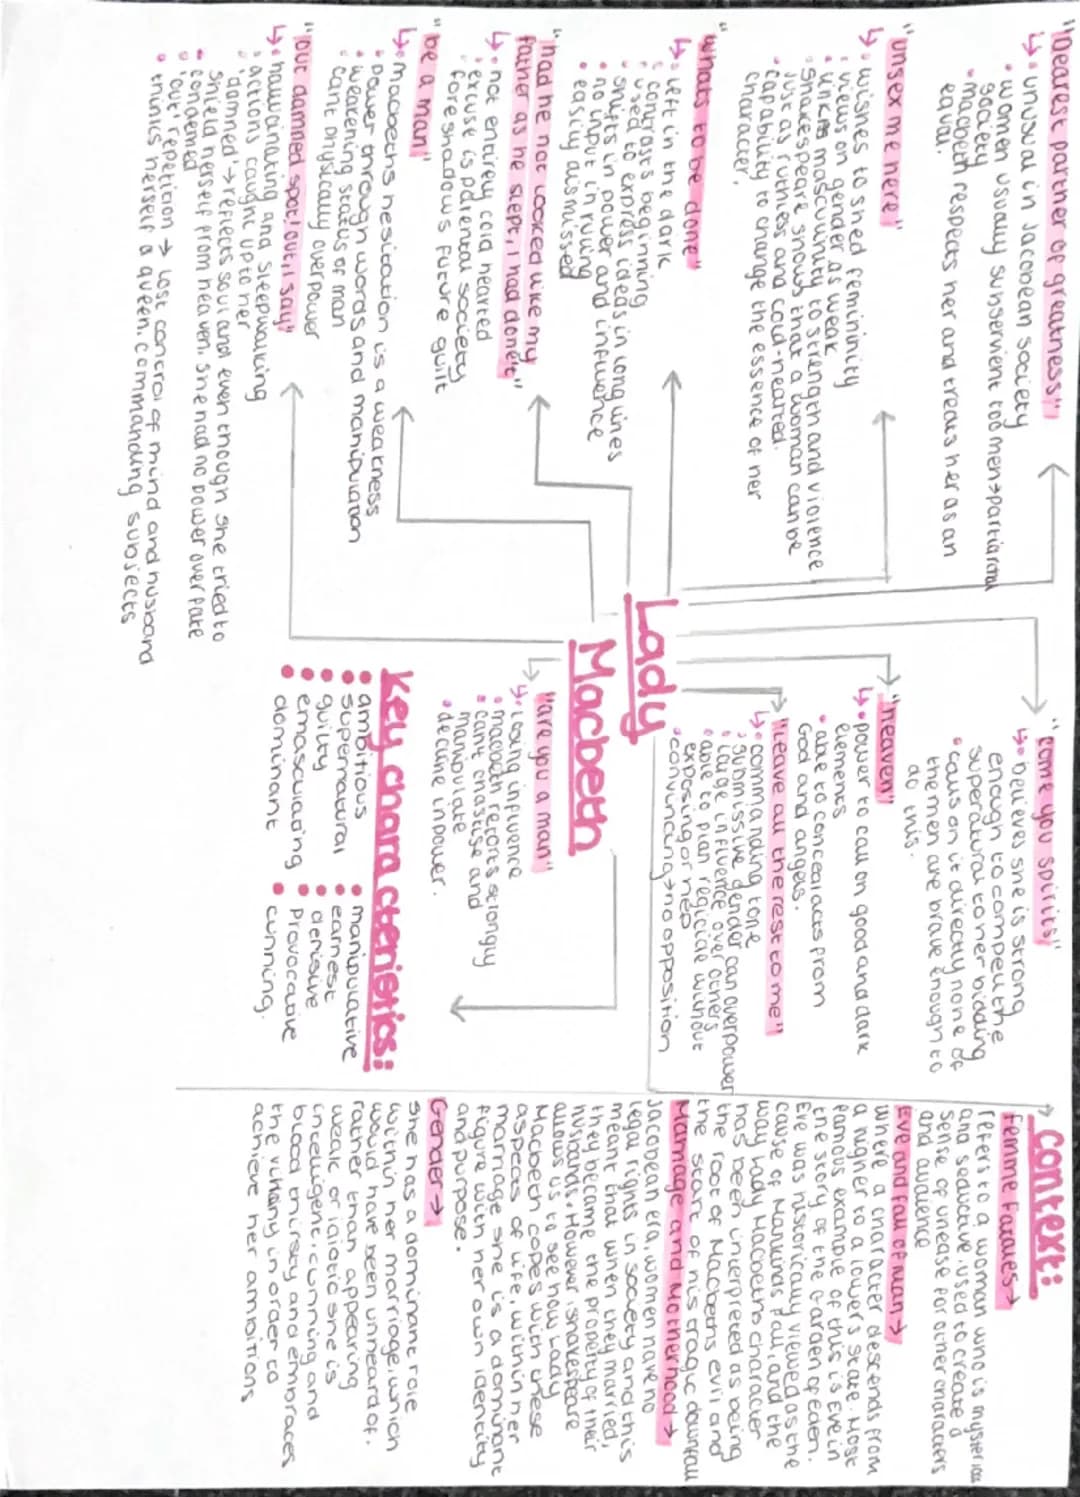 "Dearest partner of greatness"
↳ • unusual in Jacobean society
• women usually sunservient too men → partiarchal
society
• macbeth respects her and treats her as an
equal.
"unsex me here"
↳ • wishes to shed femininity
• views on gender as weak
• links masculinity to strength and violence
• Shakespeare shows that a woman can be
just as ruthless and cold-hearted.
• capability to change the essence of her
character.
"whats to be done"
↳ • left in the dark
• contrast beginning
• used to express ideas in long lines
• shifts in power and influence
• no input in ruling
• easily dismissed
"had he not looked like my
father as he slept, I had done't"
↳ • not entirely cold hearted
• excuse is parental society
• foreshadows future guilt
"be a man"
↳ • macbeths hesitation is a weakness
• power through words and manipulation
• weakening status of man
• cant physically overpower
"out damned spot! out, I say"
↳ • hallucinating and sleepwalking
• actions caught up to her
• 'damned' → reflects soul and even though she tried to
shield herself from heaven, she had no power over fate
• condemned
• 'out' repetition → lost control of mind and husband
• thinks herself a queen, commanding subjects
Lady
Macbeth
"come you spirits"
↳ • believes she is strong
enough to compell the
superatural to her bidding
• calls on it directly none of
the men are brave enough to
do this.
"heaven"
↳ • power to call on good and dark
elements
• able to conceal acts from
God and angels.
"Leave all the rest to me"
↳ • commanding tone
• submissive gender can overpower
• large influence over others
• able to plan regicide without
exposing or help
• convincing → no opposition
"are you a man"
↳ • losing influence
• macbeth retorts strongly
• can't chastise and
manipulate
• decline in power.
Key characteristics:
• ambitious
• superratural
• guilty
• emasculating
• dominant
• manipulative
• earnest
• derisive
• Provocative
• cunning.
Context:
Femme Fatales →
refers to a woman who is mysterious
and seductive. used to create a
sense of unease for other characters
and audience
Eve and fall of man →
where a character descends from
a higher to a lowers state. Most
famous example of this is Eve in
the story of the Garden of Eden.
Eve was historically viewed as the
cause of Mankinds fall, and the
way Lady Macbeths character
has been interpreted as being
the root of Macbeths evil and
the start of his tragic downfall
Marriage and Motherhood →
Jacobean era, women have no
legal rights in society and this
meant that when they married,
they became the property of their
husbands. However, Shakespeare
allows us to see how Lady
Macbeth copes with these
aspects of life, within her
marriage she is a dominant
figure with her own identity
and purpose.
Gender →
She has a dominant role
within her marriage, which
would have been unheard of.
rather than appearing
weak or idiotic she is
intelligent, cunning and
blood thirsty and embraces
the villainy in order to
achieve her ambitions